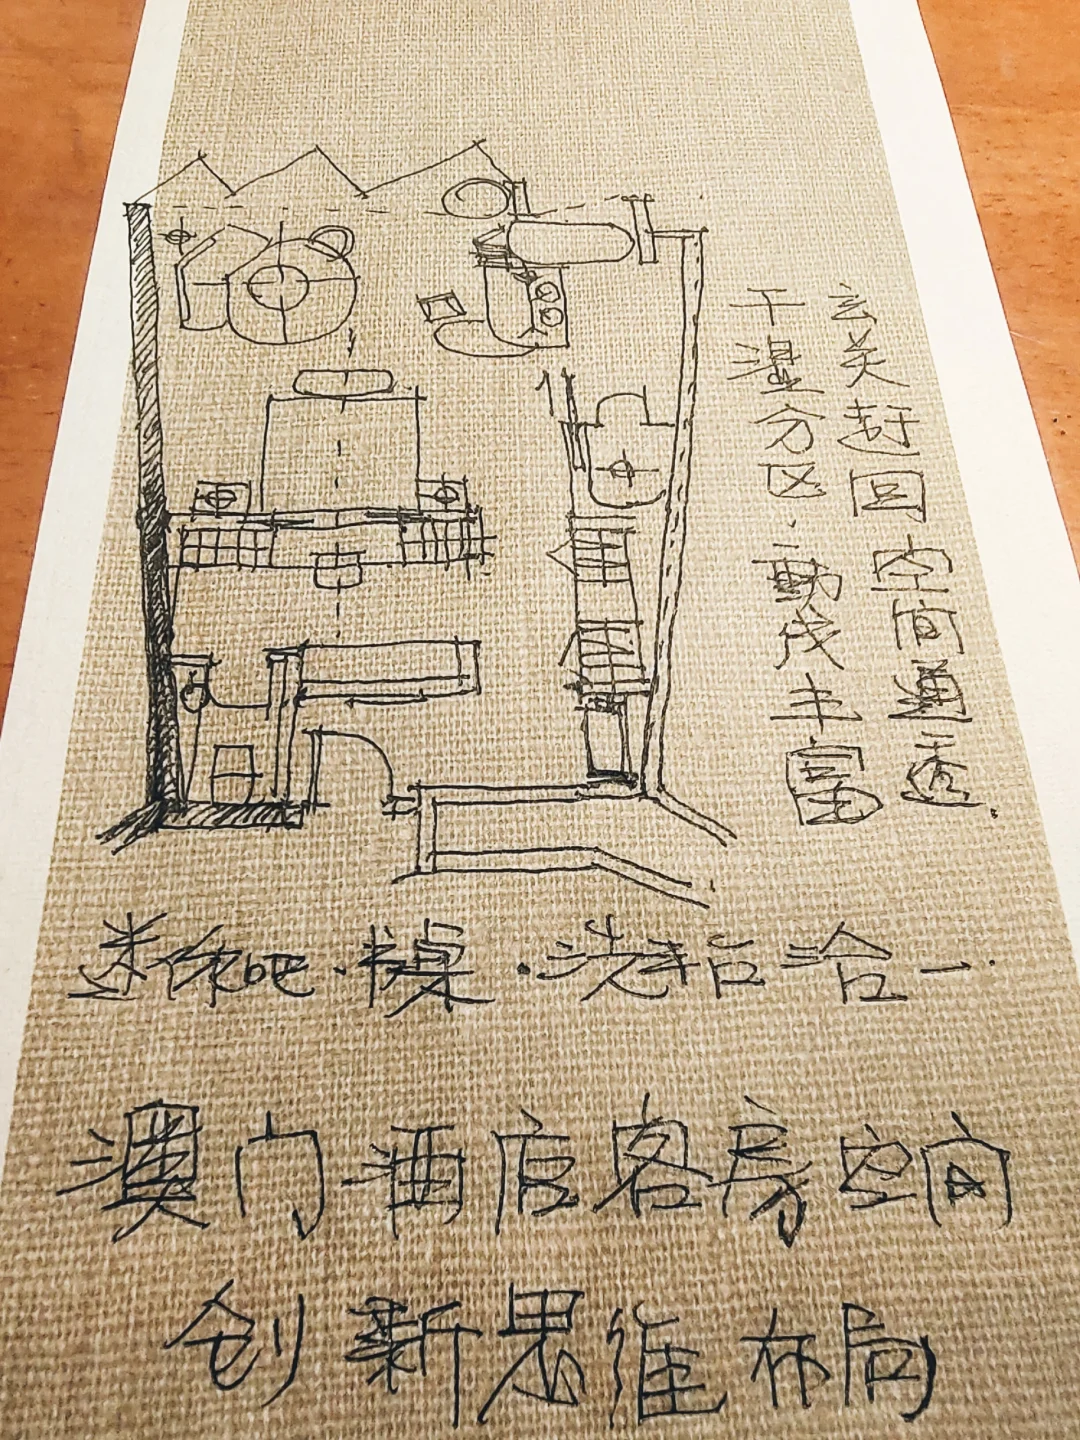 玄关赶回空间通透.
干湿分区.動线丰富
迷你吧.书桌.洗手台合一.
澳门酒店客房空间
创新思维布局